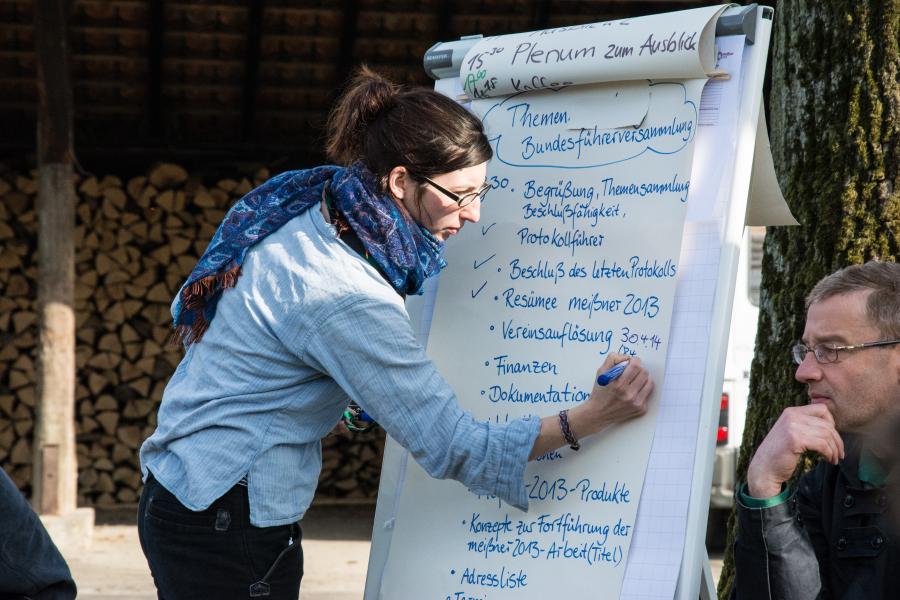 15³⁰ Plenum zum Ausblick
Kaffee
Themen
Bundesführerversammlung
30 • Begrüßung, Themensammlung
Beschlußfähigkeit,
Protokollführer
✓ • Beschluß des letzten Protokolls
✓ • Resümee meißner 2013
• Vereinsauflösung 30.4.14
• Finanzen
• Dokumentation
2013-Produkte
• Konzepte zur Fortführung der
meißner 2013-Arbeit (Titel)
• Adressliste